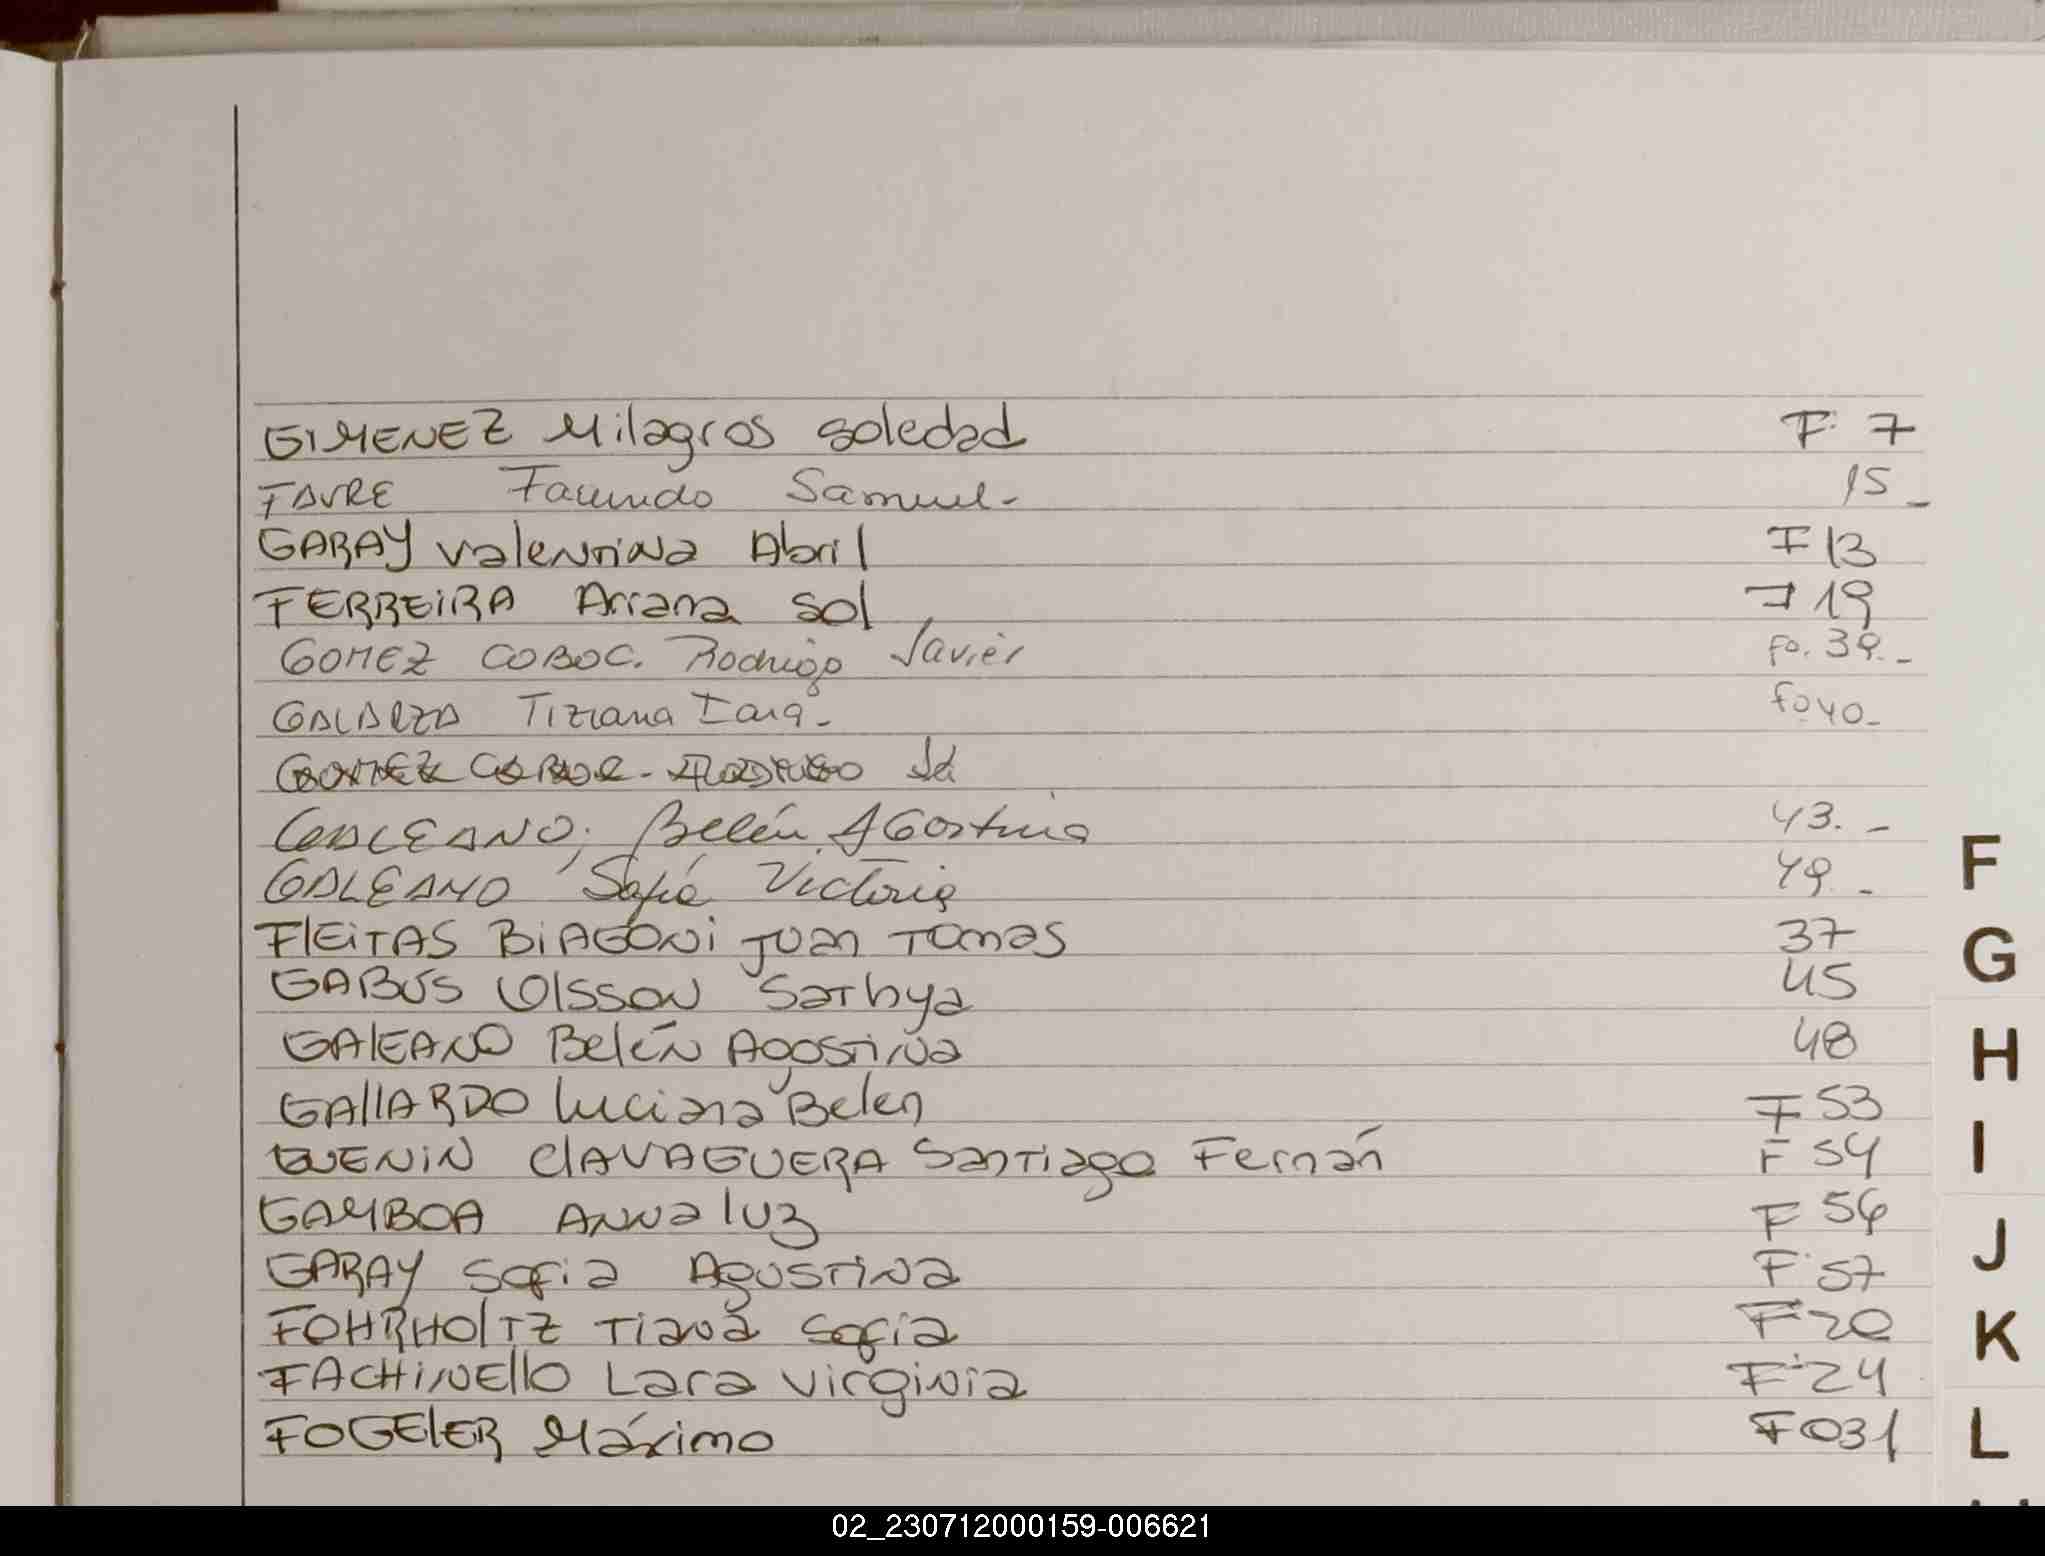 GIMENEZ Milagros Soledad F. 7
FAVRE Facundo Samuel- 15_
GARAY Valentina Abril F 13
FERREIRA Ariana Sol F 19
GOMEZ COBOC. Rodrigo Javier Fo. 39.-
GALARZA Tiziana Iara- Fo 40-
GALEANO; Belén AGostina 43.-
GALEANO Sofía Victoria 49.-
FlEiTAS BiAGONi Juan Tomas 37
GABUS OlSSON Sathya 45
GAlEANO Belén Agostina 48
GAllARDO luciana Belen F 53
GUENiN ClAVAGUERA Santiago Fernán F 54
GAMBOA Anna luz F 56
GARAY Sofia Agustina F 57
FOHRHOlTZ Tiana Sofia F 20
FACHiNEllO Lara Virginia F 24
FOGElER Máximo FO31
F
G
H
I
J
K
L
02_230712000159-006621